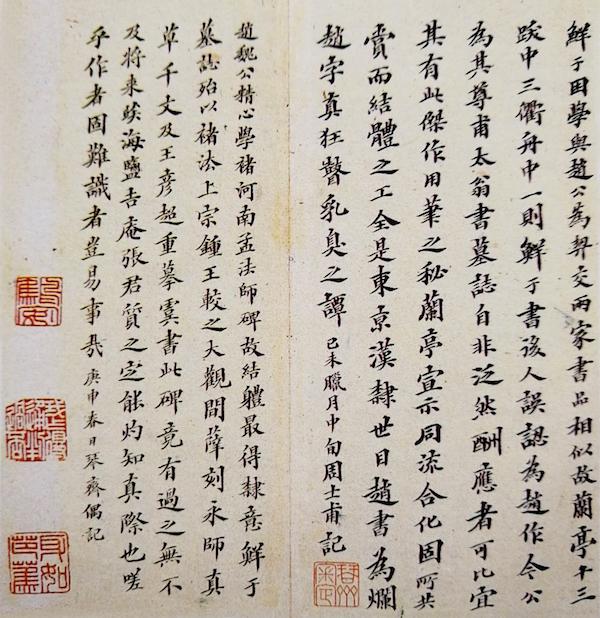 鮮于困學與趙公為契交兩家書品相似故蘭亭十三
跋中三衢舟中一則鮮于書該人誤認為趙作今公
為其尊甫太翁書墓誌自非泛然酬應者可比宜
其有此傑作用筆之秘蘭亭宣示同流合化固所共
賞而結體之工全是東京漢隸世目趙書為爛
趙字真狂瞽乳臭之譚 己未臘月中旬周士甫記
趙魏公精心學褚河南孟法師碑故結軆最得隸意鮮于
墓誌殆以褚法上宗鍾王較之大觀間薛刻永師真
草千文及王彥超重摹虞書此碑竟有過之無不
及將來海鹽吉庵張君質之定能灼知真際也嗟
乎作者固難識者豈易事哉 庚申春日琴齋偶記